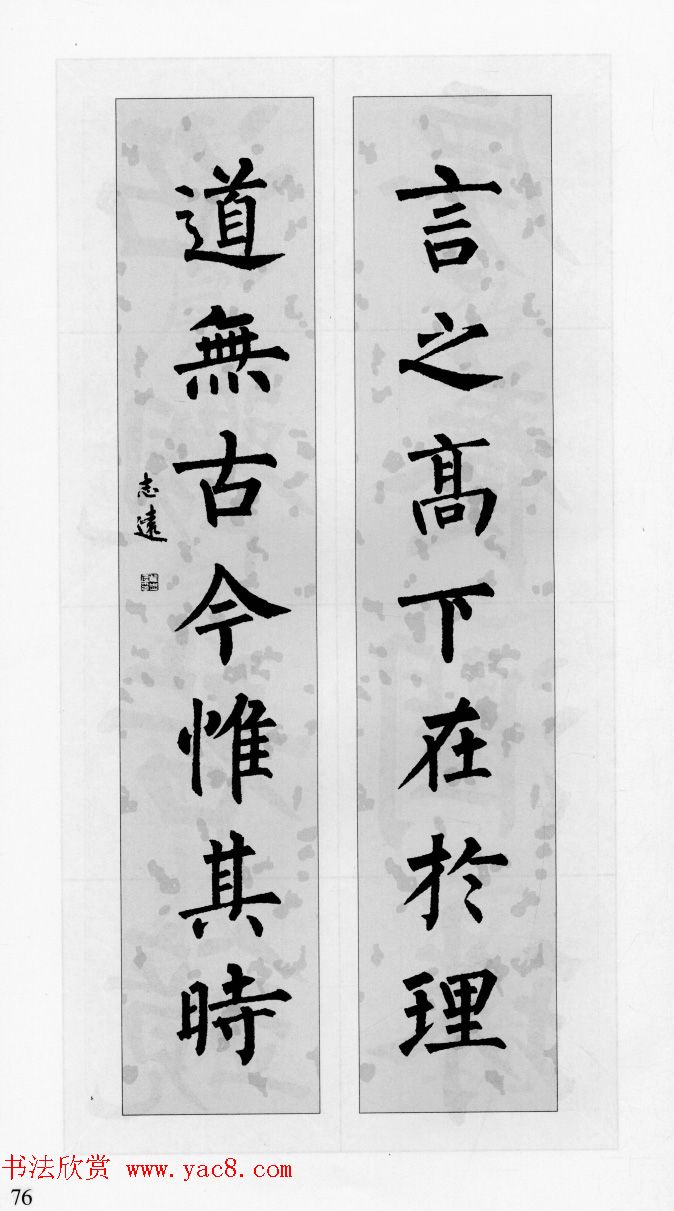 言之高下在於理
道無古今惟其時
志遠
书法欣赏 www.yac8.com
76